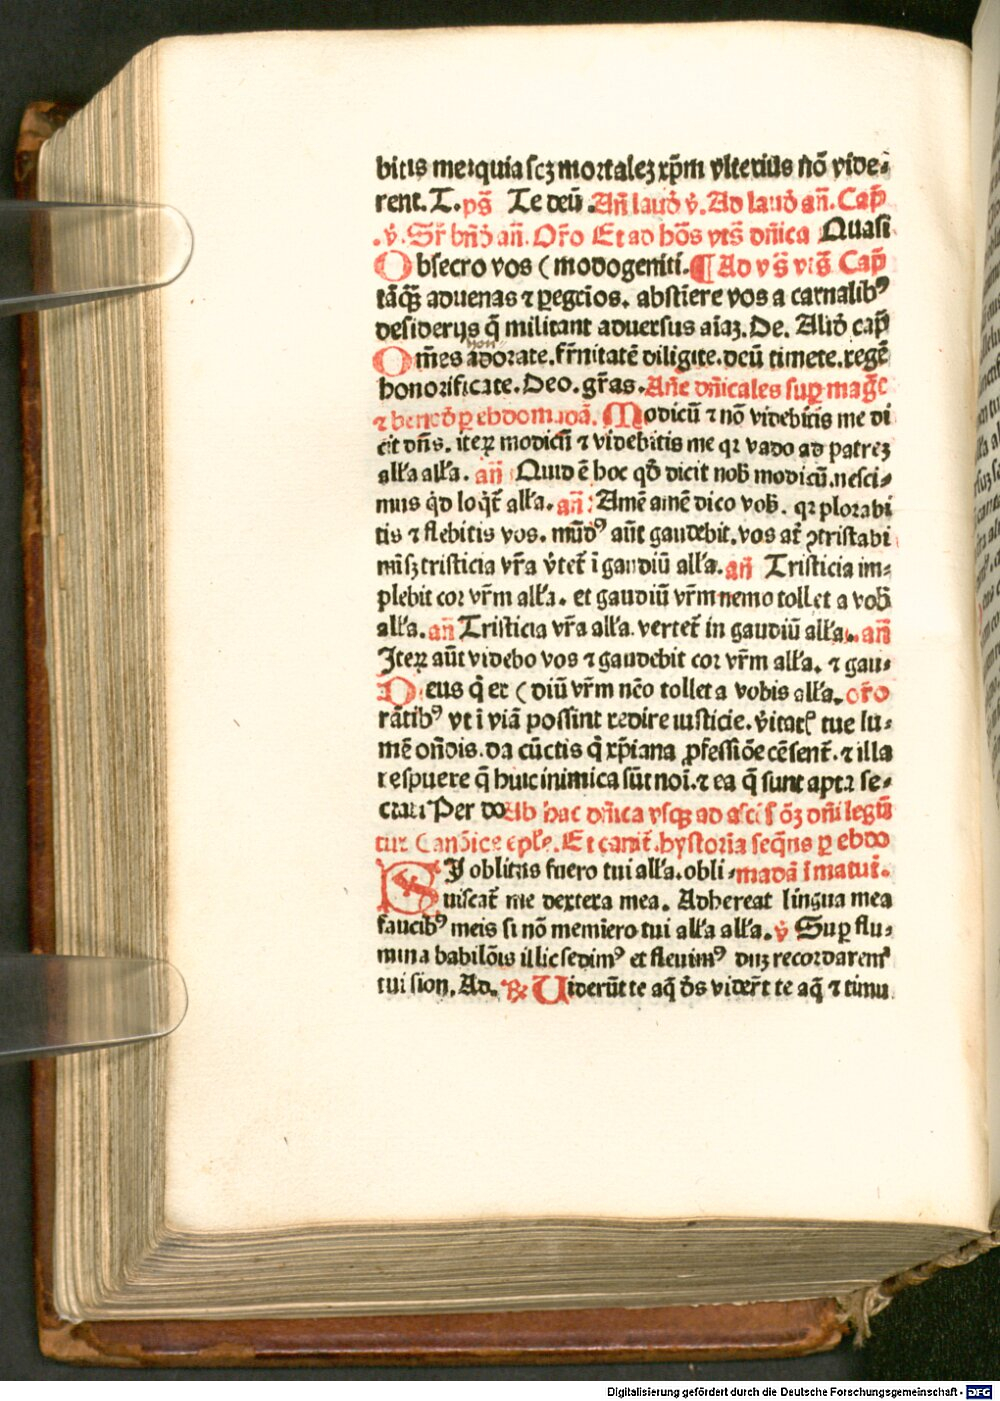 bitis me: quia scꝫ mortaleꝫ xp̄m vlterius nō vide⸗
rent. T. ps̄ Te deū. An̄ laud̄ v̇. Ad laud̄ an̄. Cap̄
.v̇. Sr̄ bn̄d̄ an̄. Or̄o Et ad ho᷒s vts̄ dn̄ica Quasi
Obsecro vos ( modogeniti. ¶ Ad vs̄ vts̄ Cap̄
tāꝙ̄ aduenas ⁊ ꝑegr̄ios. abstiere vos a carnalibꝰ
desiderijs q̄ militant aduersus aīaꝫ. De. Alid̄ cap̄
non
Om̄es adorate. fr̄nitatē diligite. deū timete. regē
honorificate. Deo. gr̄as. An̄e dn̄icales suꝑ mag̅t̅
⁊ bened̄ ꝑ ebdom̄adā. Modicū ⁊ nō videbitis me di
cit dn̄s. iteꝝ modicū ⁊ videbitis me qꝛ vado ad patreꝫ
all'a all'a. an̄ Quid ē hoc qd̄ dicit nob̄ modicū. nesci⸗
mus qd̄ loqt̄ all'a. an̄: Amē amē dico vob̄. qꝛ plorabi
tis ⁊ flebitis vos. mūdꝰ aūt gaudebit. vos at̄ ꝯtristabi
mī sꝫ tristicia vr̄a v̇tet̄ ī gaudiū all'a. an̄ Tristicia im⸗
plebit cor vr̄m all'a. et gaudiū vr̄m nemo tollet a vob̄
all'a. an̄ Tristicia vr̄a all'a. vertet̄ in gaudiū all'a. an̄
Iteꝝ aūt videbo vos ⁊ gaudebit cor vr̄m all'a. ⁊ gau⸗
Deus q̇ er ( diū vr̄m nēo tollet a vobis all'a. or̄o
rātibꝰ vt ī viā possint redire iusticie. v̇itatꝭ tue lu⸗
mē on̄dis. da cūctis q̇ xp̄iana ꝓfessiōe cēsent̄. ⁊ illa
respuere q̄ huic inimica sūt noī. ⁊ ea q̄ sunt apta se⸗
ctari Per do Ab hac dn̄ica vsqꝫ ad
tur Canōice epl'e. Et cantat̄ hystoria seqn̄s ꝑ ebdo
SI oblitus fuero tui all'a. obli⸗ madā ī matut̄.
uiscat̄ me dextera mea. Adhereat lingua mea
faucibꝰ meis si nō memiero tui all'a all'a. v̇ Suꝑ flu⸗
mina babilōis illic sedimꝰ et fleuimꝰ duꝫ recordaremꝰ
tui sion. Ad. ℟ Uiderūt te aq̄ ds̄ vider̄t te aq̄ ⁊ timu
Digitalisierung gefördert durch die Deutsche Forschungsgemeinschaft - DFG